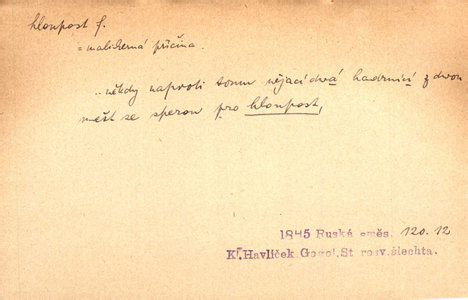 hloupost f.
= malicherná příčina.
..někdy naproti tomu nějací dvá hadrníci z dvou
měst se sperou pro hloupost,
1845 Ruská směs. 120.12
K. Havlíček. Gogol. Starosv. šlechta.